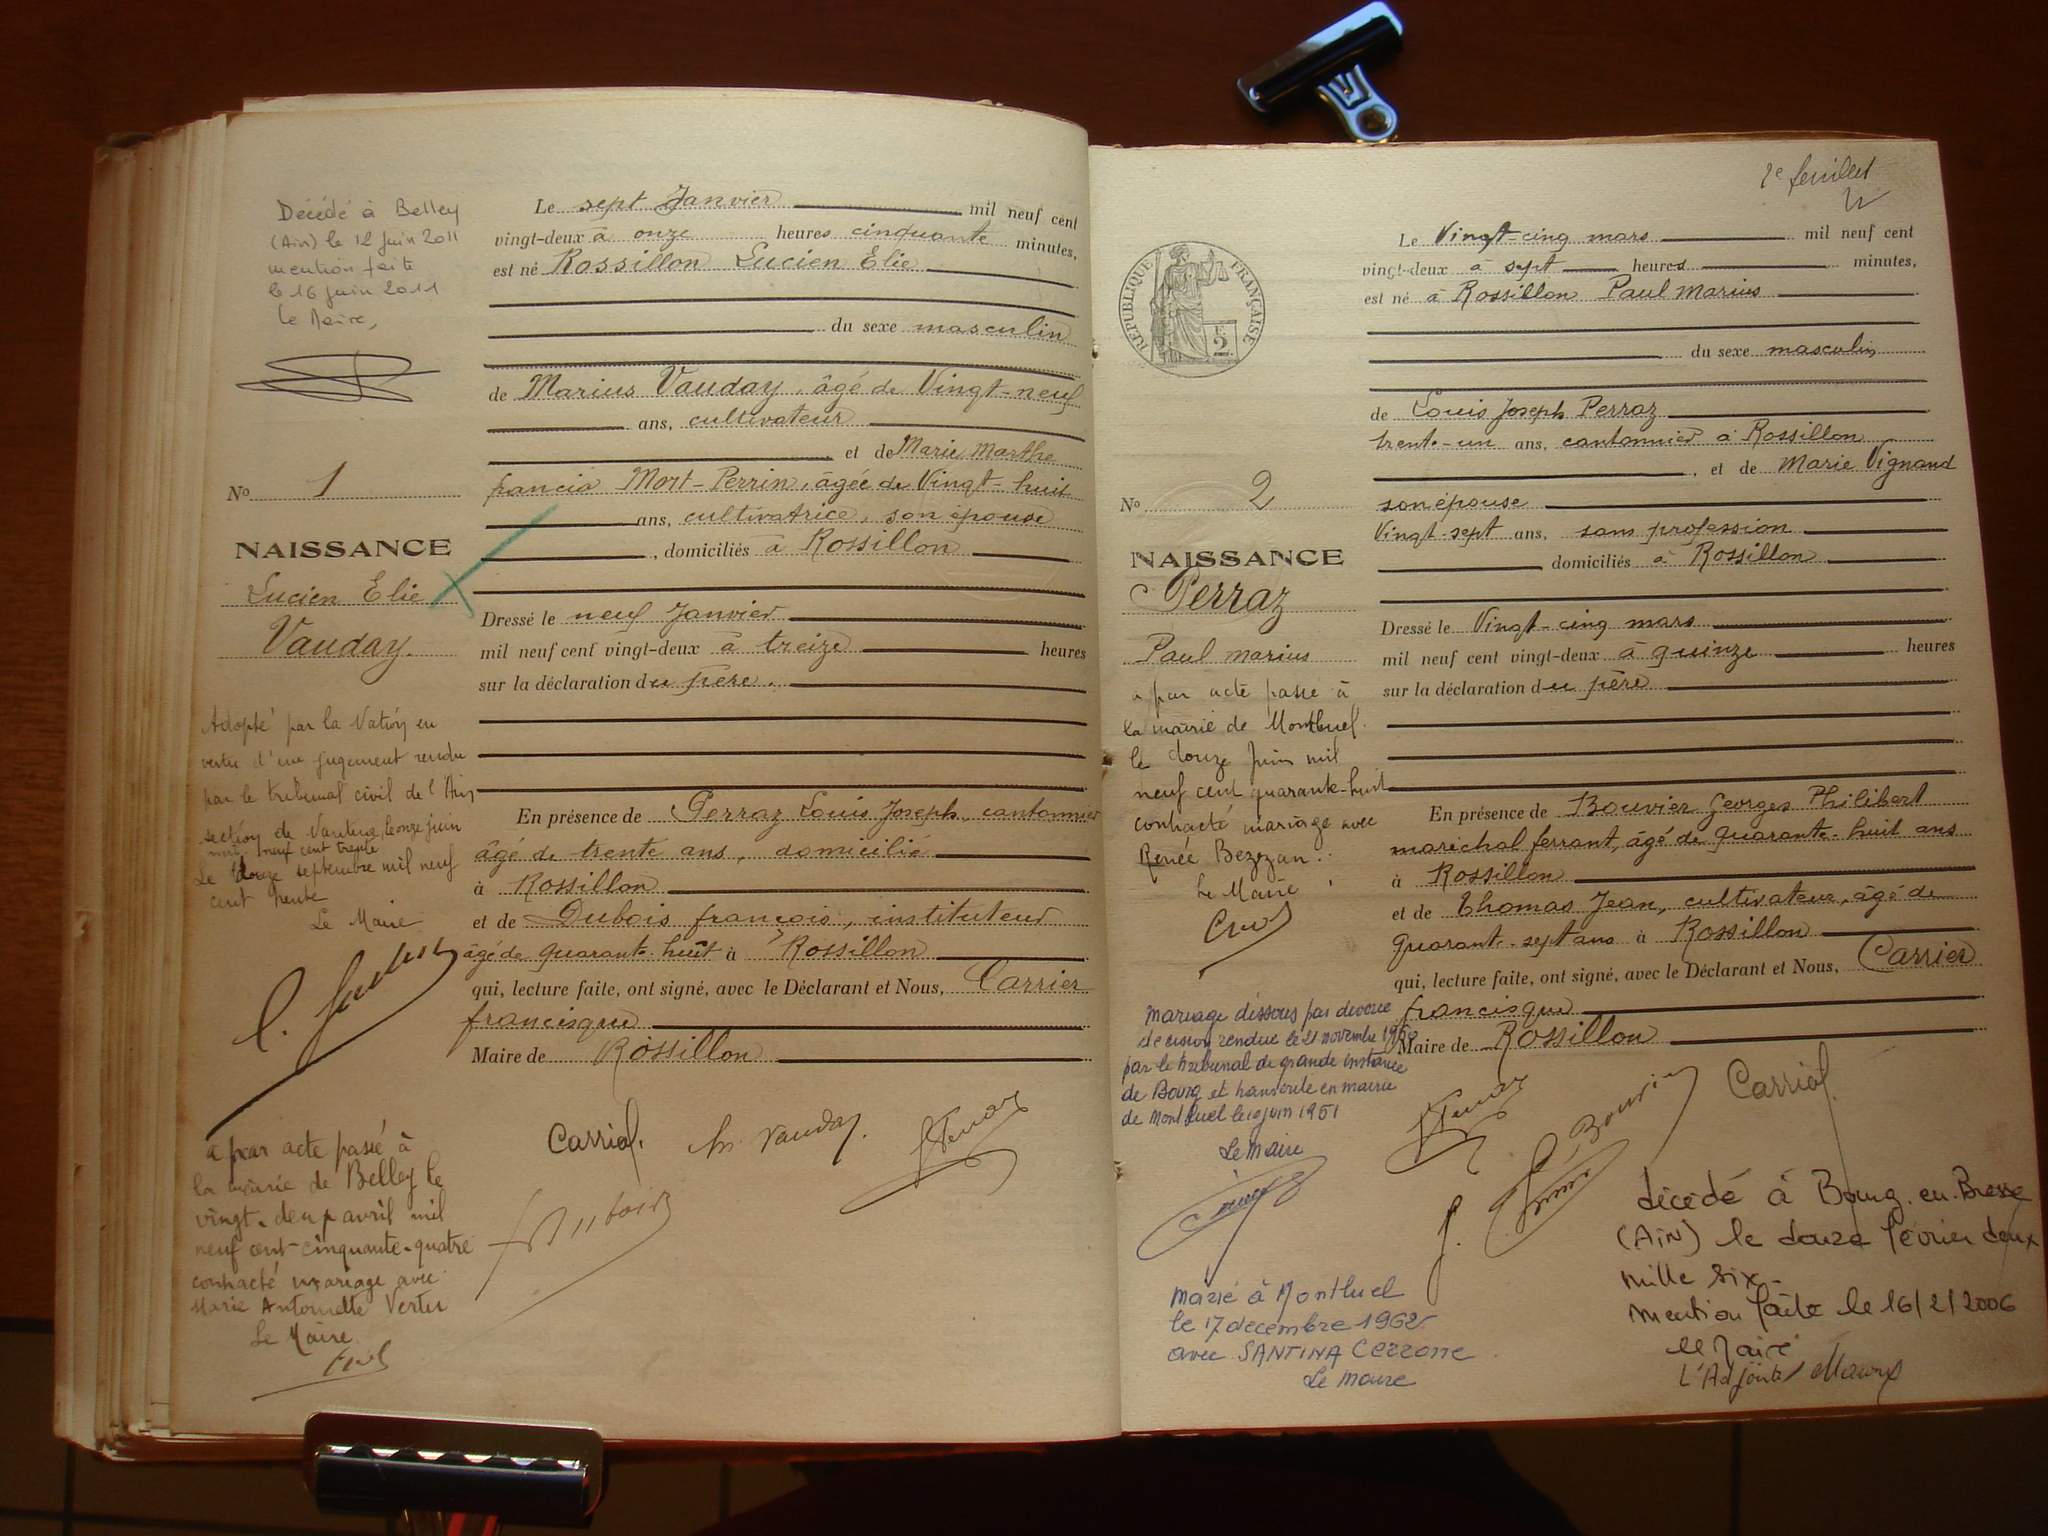 Décédé à Belley
(Ain) le 12 juin 2011
mention faite
le 16 juin 2011
le Maire,
No 1
NAISSANCE
Lucien Elie
Vauday.
Adopté par la Nation en
vertu d'un jugement rendu
par le tribunal civil de l'Ain
section de le onze juin
mil neuf cent trente
Le douze septembre mil neuf
cent trente
Le Maire
a par acte passé à
la mairie de Belley le
vingt-deux avril mil
neuf cent cinquante-quatre
contracté mariage avec
Marie Antoinette Vertu
Le Maire
Le sept Janvier mil neuf cent
vingt-deux à onze heures cinquante minutes,
est né Rossillon Lucien Elie
du sexe masculin
de Marius Vauday, âgé de Vingt-neuf
ans, cultivateur
et de Marie Marthe
francia Mort-Perrin, âgée de Vingt-huit
ans, cultivatrice, son épouse
, domiciliés à Rossillon
Dressé le neuf Janvier
mil neuf cent vingt-deux à treize heures
sur la déclaration du père.
En présence de Perraz Louis Joseph, cantonnier
âgé de trente ans, domicilié
à Rossillon
et de Dubois françois, instituteur
âgé de quarante-huit à Rossillon
qui, lecture faite, ont signé, avec le Déclarant et Nous, Carrier
francisque
Maire de Rossillon
Carrier. M. Vauday.
Dubois
2e feuillet
RÉPUBLIQUE FRANÇAISE
No 2
NAISSANCE
Perraz
Paul Marius
a par acte passé à
la mairie de Montluel
le douze Juin mil
neuf cent quarante-huit
contracté mariage avec
Renée Bezezan.
Le Maire
Mariage dissous par divorce
décision rendue le 21 novembre 1960
par le tribunal de grande instance
de Bourg et transcrite en mairie
de Montluel le 10 juin 1961
Le Maire
Marié à Montluel
le 17 décembre 1962
avec SANTINA Cerrone
Le Maire
Le Vingt-cinq mars mil neuf cent
vingt-deux à sept heures minutes,
est né à Rossillon Paul Marius
du sexe masculin
de Louis Joseph Perraz
trente-un ans, cantonnier à Rossillon
, et de Marie Vignand
son épouse
Vingt-sept ans, sans profession
domiciliés à Rossillon
Dressé le Vingt-cinq mars
mil neuf cent vingt-deux à quinze heures
sur la déclaration du père
En présence de Bouvier Georges Philibert
maréchal ferrant, âgé de quarante-huit ans
à Rossillon
et de Thomas Jean, cultivateur, âgé de
quarant-sept ans à Rossillon
qui, lecture faite, ont signé, avec le Déclarant et Nous, Carrier
francisque
Maire de Rossillon
Bouvier Carrier
décédé à Bourg-en-Bresse
(AiN) le douze février deux
mille six.
mention faite le 16/2/2006
le Maire
L'Adjoint